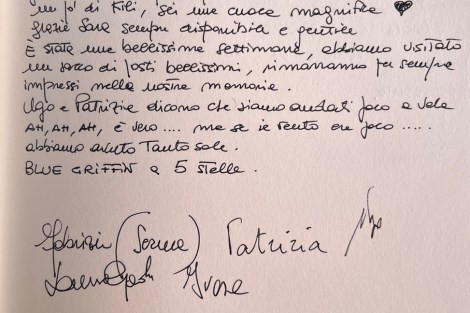 un po' di Kili, sei una cuoca magnifica ♥
grazie Sara sempre disponibile e gentile
È stata una bellissima settimana, abbiamo visitato
un sacco di posti bellissimi, rimarranno per sempre
impressi nella nostra memoria.
Ugo e Patrizia dicono che siamo andati poco a vela
AH, AH, AH, è vero .... ma se il vento era poco .....
abbiamo avuto tanto sole.
BLUE GRIFFIN a 5 stelle.
(Sorma) Patrizia Ugo
Ivone